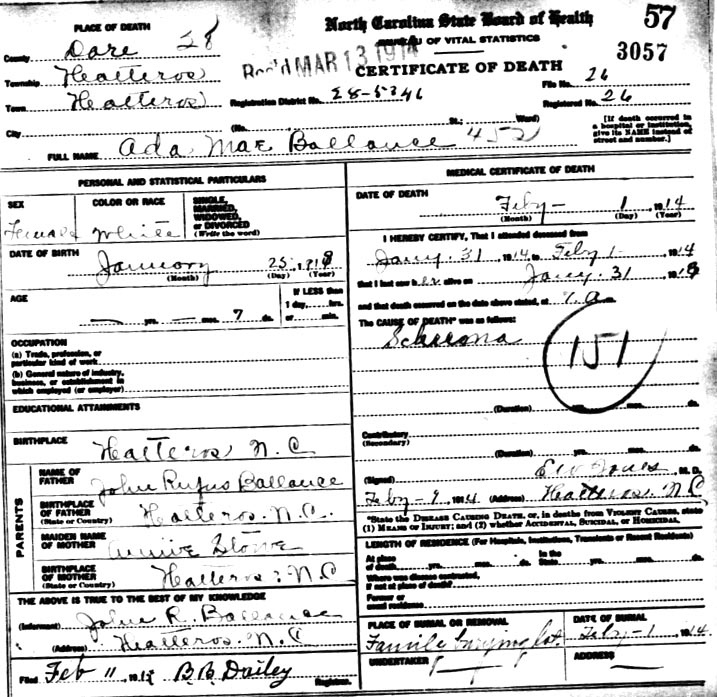 PLACE OF DEATH
North Carolina State Board of Health
57
County Dare 28
BUREAU OF VITAL STATISTICS
3057
Rec'd MAR 13 1914
CERTIFICATE OF DEATH
Township Hatteros
File No. 26
Town Hatteros
Registration District No. 28-5346
Registered No. 26
City
(No. St.; Ward)
[If death occurred in a hospital or institution, give its NAME instead of street and number.]
452
FULL NAME Ada Mae Ballance
PERSONAL AND STATISTICAL PARTICULARS
SEX
COLOR OR RACE
SINGLE, MARRIED, WIDOWED, or DIVORCED (Write the word)
Female White
DATE OF BIRTH
January 25, 1914
(Month) (Day) (Year)
AGE
If LESS than 1 day, hrs. or min.
— yrs. — mos. 7 ds.
OCCUPATION
(a) Trade, profession, or particular kind of work
(b) General nature of industry, business, or establishment in which employed (or employer)
EDUCATIONAL ATTAINMENTS
BIRTHPLACE Hatteros N.C
PARENTS
NAME OF FATHER John Rufus Ballance
BIRTHPLACE OF FATHER (State or Country) Hatteros. N.C.
MAIDEN NAME OF MOTHER Annive Stowe
BIRTHPLACE OF MOTHER (State or Country) Hatteros: N.C
THE ABOVE IS TRUE TO THE BEST OF MY KNOWLEDGE
(Informant) John R. Ballance
(Address) Hatteros. N.C
Filed Feb 11, 1914 B.B. Dailey Registrar.
MEDICAL CERTIFICATE OF DEATH
DATE OF DEATH
Feby- 1 1914
(Month) (Day) (Year)
I HEREBY CERTIFY, That I attended deceased from
Jany. 31 1914 to Feby 1- 1914
that I last saw her alive on Jany. 31 1914
and that death occurred on the date above stated, at 7 a m.
The CAUSE OF DEATH* was as follows:
151
(Duration) yrs. mos. ds.
Contributory (Secondary)
(Duration) yrs. mos. ds.
(Signed) M. D.
Feby-9 1914 (Address) Hatteros. N.C
*State the DISEASE CAUSING DEATH, or, in deaths from VIOLENT CAUSES, state (1) MEANS OF INJURY; and (2) whether ACCIDENTAL, SUICIDAL, OR HOMICIDAL.
LENGTH OF RESIDENCE (For Hospitals, Institutions, Transients or Recent Residents)
At place of death yrs. mos. ds. In the State yrs. mos. ds.
Where was disease contracted, if not at place of death?
Former or usual residence
PLACE OF BURIAL OR REMOVAL
DATE OF BURIAL
Family burying lot. Feby-1 1914
UNDERTAKER
ADDRESS